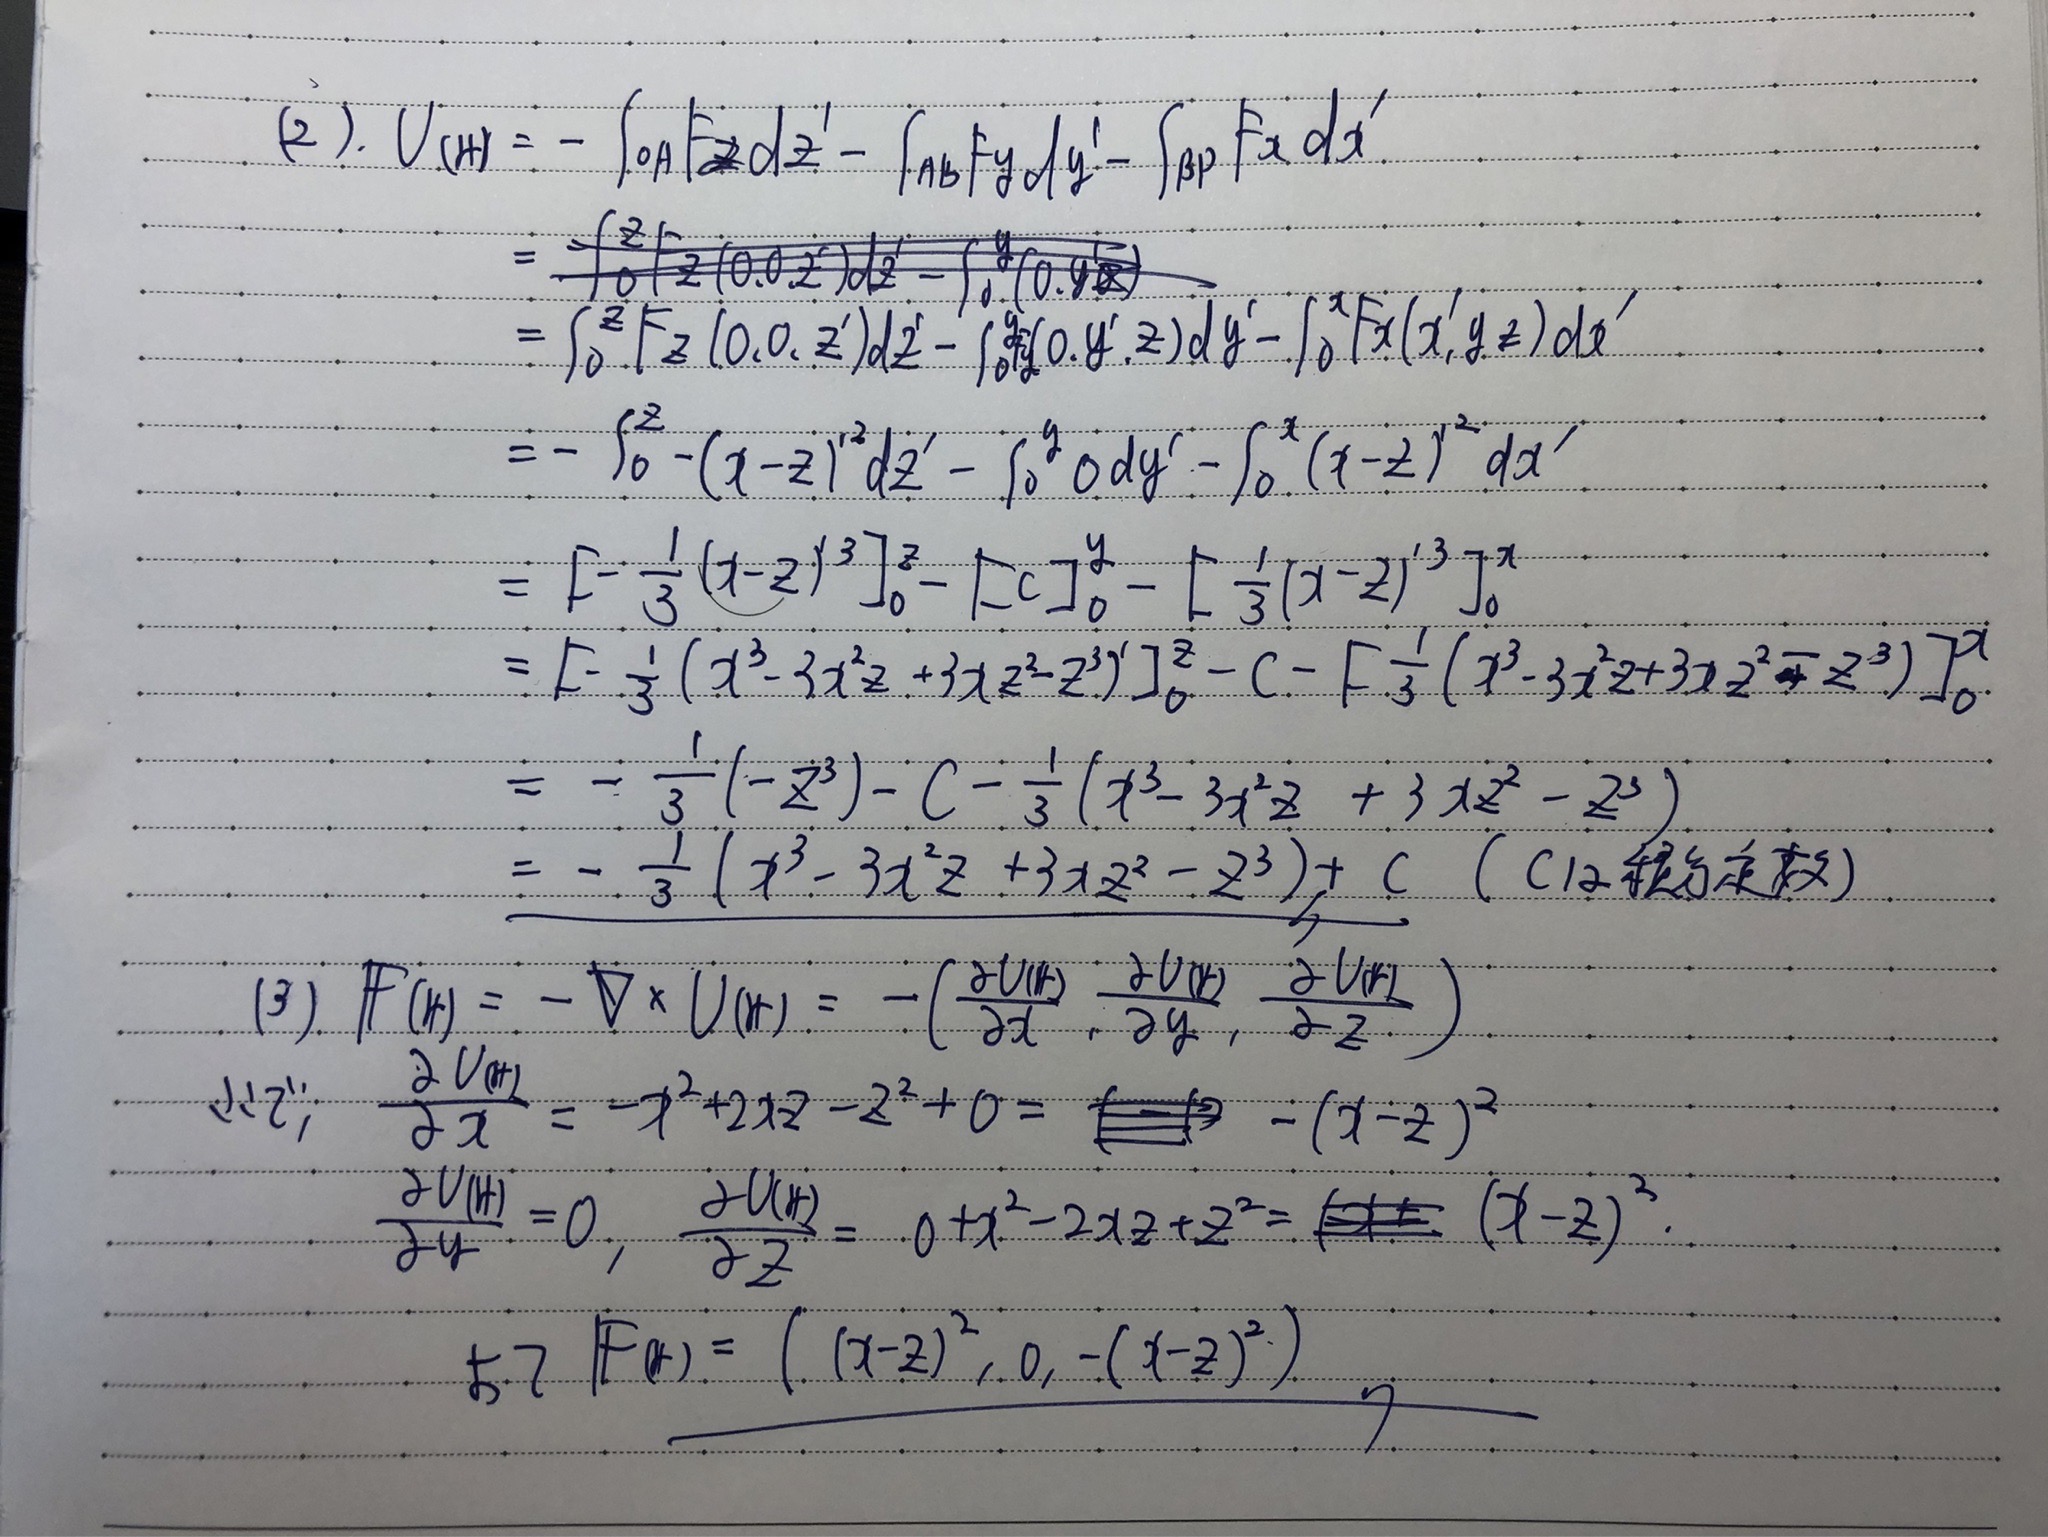 (2). U(r) = - ∫OA Fz dz' - ∫AB Fy dy' - ∫BP Fx dx'
= ∫₀ᶻ Fz (0.0.z')dz' - ∫₀ʸ (0.y'z)
= ∫₀ᶻ Fz (0.0.z')dz' - ∫₀ʸ Fy(0.y'.z)dy' - ∫₀ˣ Fx(x',y z)dx'
= - ∫₀ᶻ -(x-z)'² dz' - ∫₀ʸ 0 dy' - ∫₀ˣ (x-z)'² dx'
= [- 1/3 (x-z)'³]₀ᶻ - [C]₀ʸ - [1/3 (x-z)'³]₀ˣ
= [- 1/3 (x³-3x²z+3xz²-z³)']₀ᶻ - C - [1/3 (x³-3x²z+3xz²-z³)]₀ˣ
= - 1/3 (-z³) - C - 1/3 (x³-3x²z + 3xz² - z³)
= - 1/3 (x³-3x²z+3xz²-z³) + C (Cは積分定数)
(3) F(r) = - ∇ × U(r) = - (∂U(r)/∂x, ∂U(r)/∂y, ∂U(r)/∂z)
ここで, ∂U(r)/∂x = -x²+2xz-z²+0 = -(x-z)²
∂U(r)/∂y = 0, ∂U(r)/∂z = 0+x²-2xz+z² = (x-z)².
よって F(r) = ((x-z)², 0, -(x-z)²)